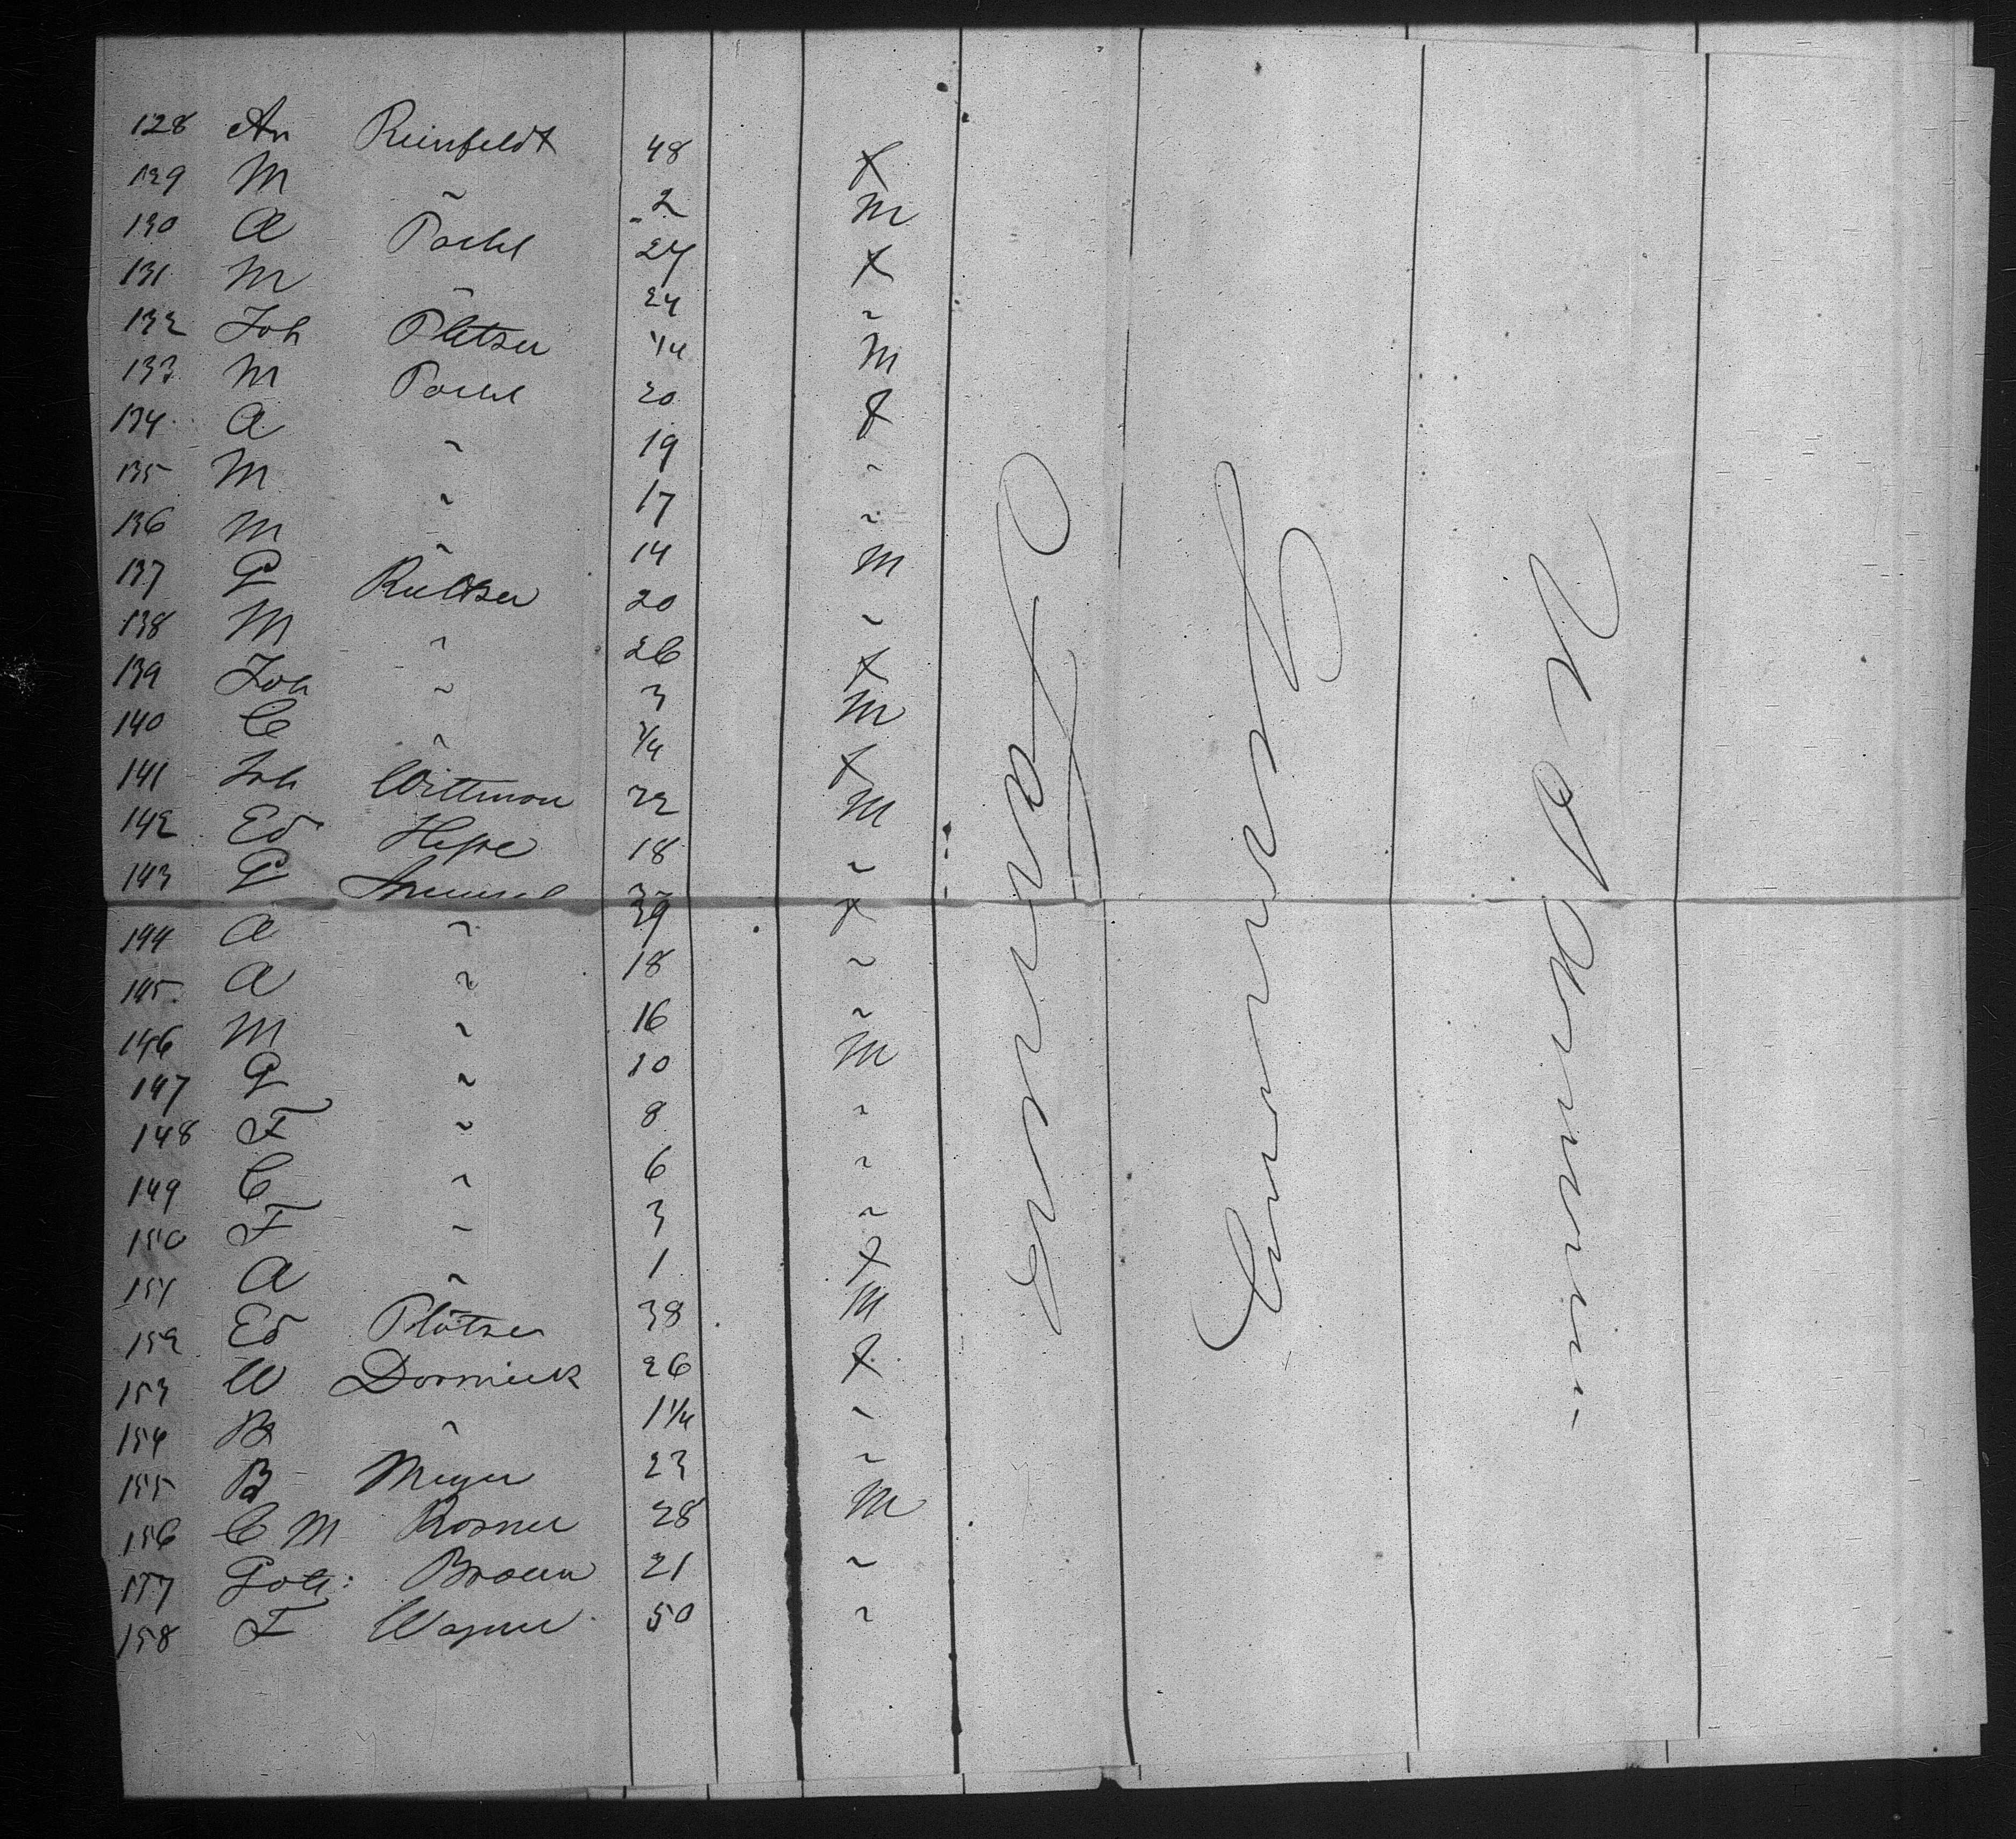 128 An Reinfeldt 48 f
129 M " 2 M
130 A Poehl 24 f
131 M " 24 "
132 Joh Pletzer 1/4 M
133 M Poehl 20 f
134 A " 19 "
135 M " 17 "
136 M " 14 M
137 G 20 "
138 M " 26 f
139 Joh " 3 M
140 C " 3/4 f
141 Joh Wittman 32 M
142 Ed Heppe 18 "
143 G
144 A " 39 f
145 A " 18 "
146 M " 16 "
147 G " 10 M
148 F " 8 "
149 C " 6 "
150 F " 3 "
151 A " 1 f
152 Ed Plötzer 38 M
153 W Dormieck 26 f
154 B " 1 1/4 "
155 B Meyer 23 "
156 C M Rosner 28 M
157 Gott: Braun 21 "
158 F Wagner 50 "
Farmers
Germany